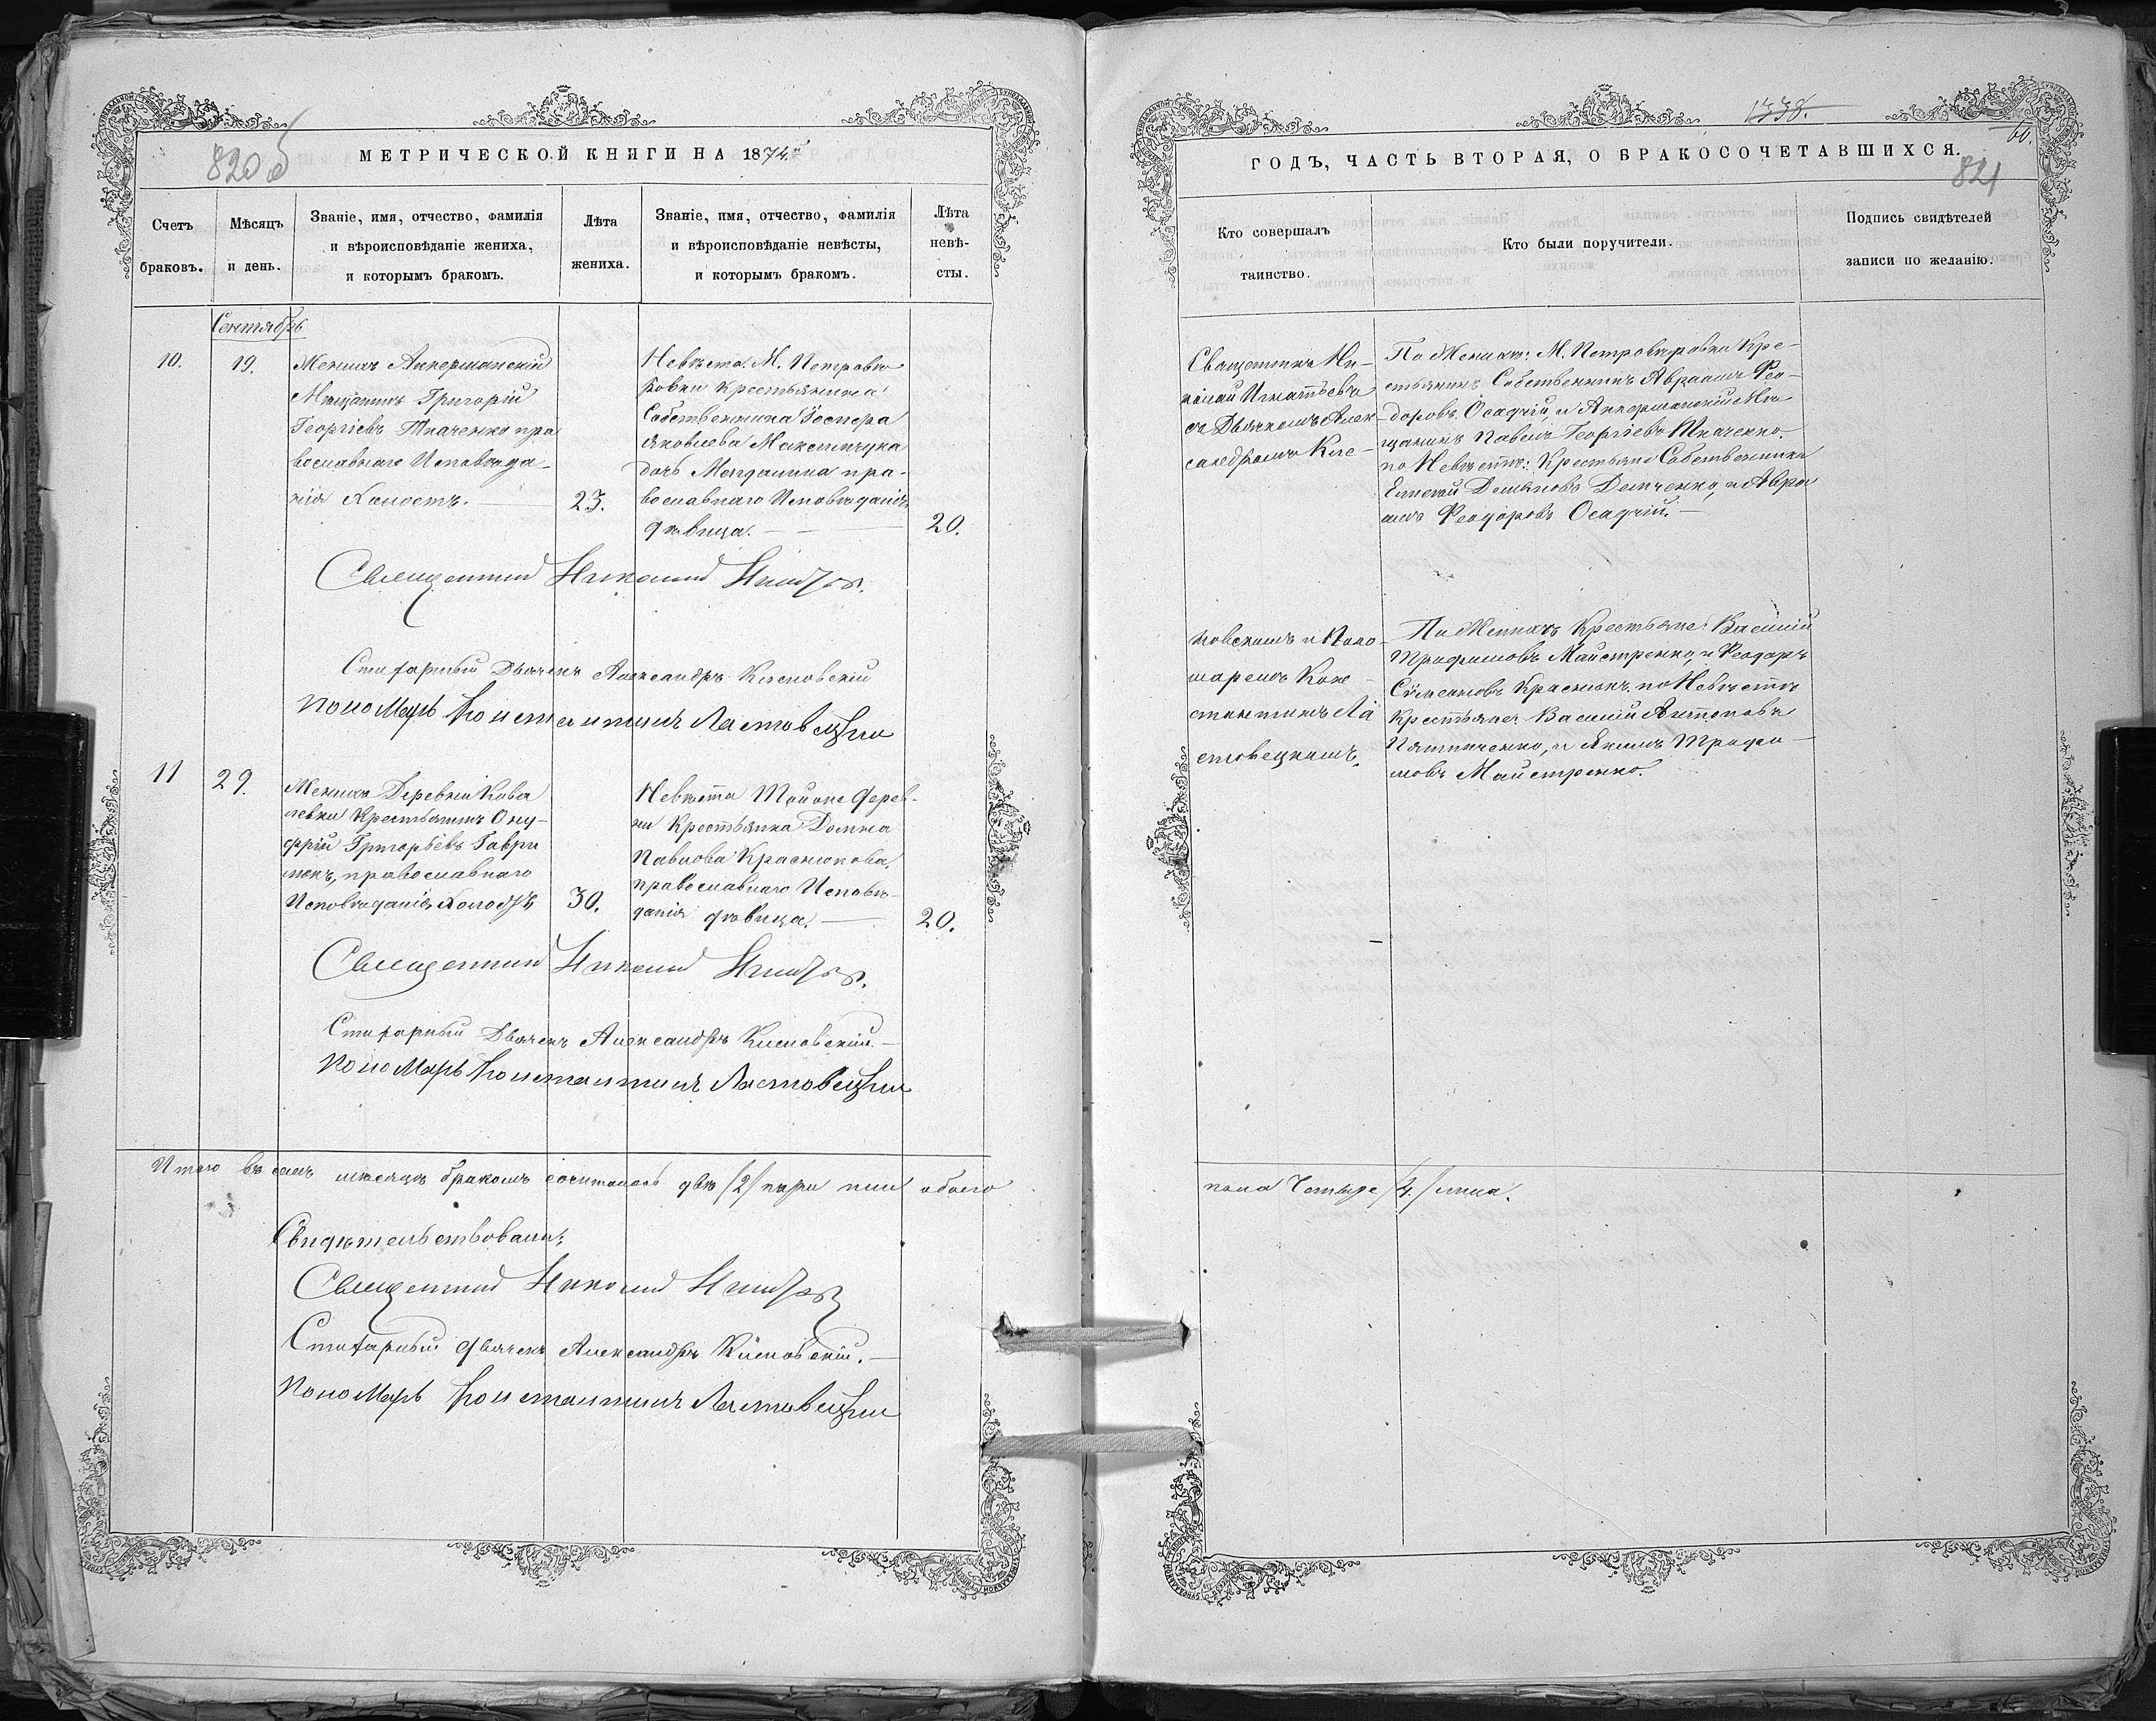 820 об
МЕТРИЧЕСКОЙ КНИГИ НА 1874й
Счетъ
браковъ.
Мѣсяцъ
и день.
Званіе, имя, отчество, фамилія
и вѣроисповѣданіе жениха,
и которымъ бракомъ.
Лѣта
жениха.
Званіе, имя, отчество, фамилія
и вѣроисповѣданіе невѣсты,
и которымъ бракомъ.
Лѣта
невѣ-
сты.
Сентябрь
10.
19.
Женихъ Аккерманскій
Мѣщанинъ Григорій
Георгіевъ Ткаченко пра
вославнаго Исповѣда-
нія Холостъ.
23.
Невѣста: М. Петровѣ
ровки Крестьянина
Собственника Іосифа
Яковлева Максимчука
дочь Магдалина пра-
вославнаго Исповѣданія
дѣвица.
20.
Священникъ Николай
Стихарный Дьячекъ Александръ Клеповскій
Пономарь Константинъ Ластовецкій
11
29.
Женихъ Деревни Кова
левки Крестьянинъ Ону-
фрій Григорьевъ Гаври
люкъ, православнаго
Исповѣданія Холостъ
30.
Невѣста Тойже дерев-
ни Крестьянка Домна
Павлова Краснюкова,
православнаго Исповѣ-
данія дѣвица.
20.
Священникъ Николай
Стихарный Дьячекъ Александръ Клеповскій.
Пономарь Константинъ Ластовецкій
Итого въ семъ мѣсяцѣ бракомъ сочиталось двѣ /2/ пары или обоего
Свидѣтельствовали:
Священникъ Николай
Стихарный дьячекъ Александръ Клеповскій.
Пономарь Константинъ Ластовецкій
1338.
60.
821
ГОДЪ, ЧАСТЬ ВТОРАЯ, О БРАКОСОЧЕТАВШИХСЯ.
Кто совершалъ
таинство.
Кто были поручители.
Подпись свидѣтелей
записи по желанію.
Священникъ Ни-
колай Игнатьевъ
съ Дьячкомъ Алек-
сандромъ Кле-
По Женихѣ: М. Петровѣровки Кре-
стьянинъ Собственникъ Авраамъ Фео-
доровъ Осадчій, и Аккерманскій Мѣ-
щанинъ Павелъ Георгіевъ Ткаченко.
по Невѣстѣ: Крестьяне Собственники
Елисей Демьяновъ Демченко, и Авра
амъ Феодоровъ Осадчій.
повскимъ и Поно-
маремъ Кон-
стантиномъ Ла
стовецкимъ.
По Женихѣ Крестьяне: Василій
Трофимовъ Майстренко, и Феодоръ
Симеоновъ Краснюкъ. по Невѣстѣ
Крестьяне: Василій Антоновъ
Пятниченко, и Якимъ Трофи-
мовъ Майстренко.
пола Четыре /4./ лица.